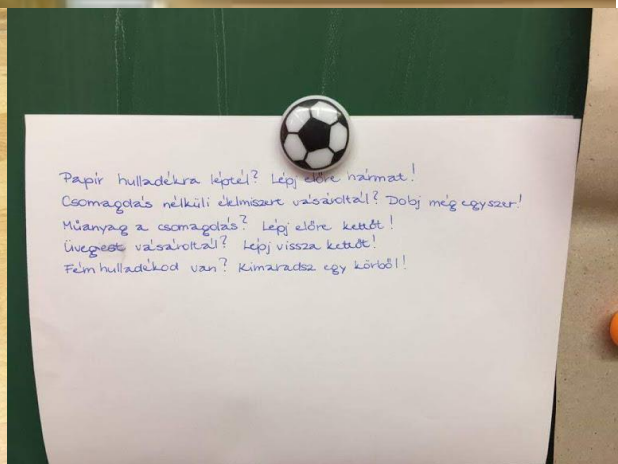 Papír hulladékra léptél? Lépj előre hármat!
Csomagolás nélküli élelmiszert vásároltál? Dobj még egyszer!
Műanyag a csomagolás? Lépj előre kettőt!
Üvegest vásároltál? Lépj vissza kettőt!
Fém hulladékod van? Kimaradsz egy körből!